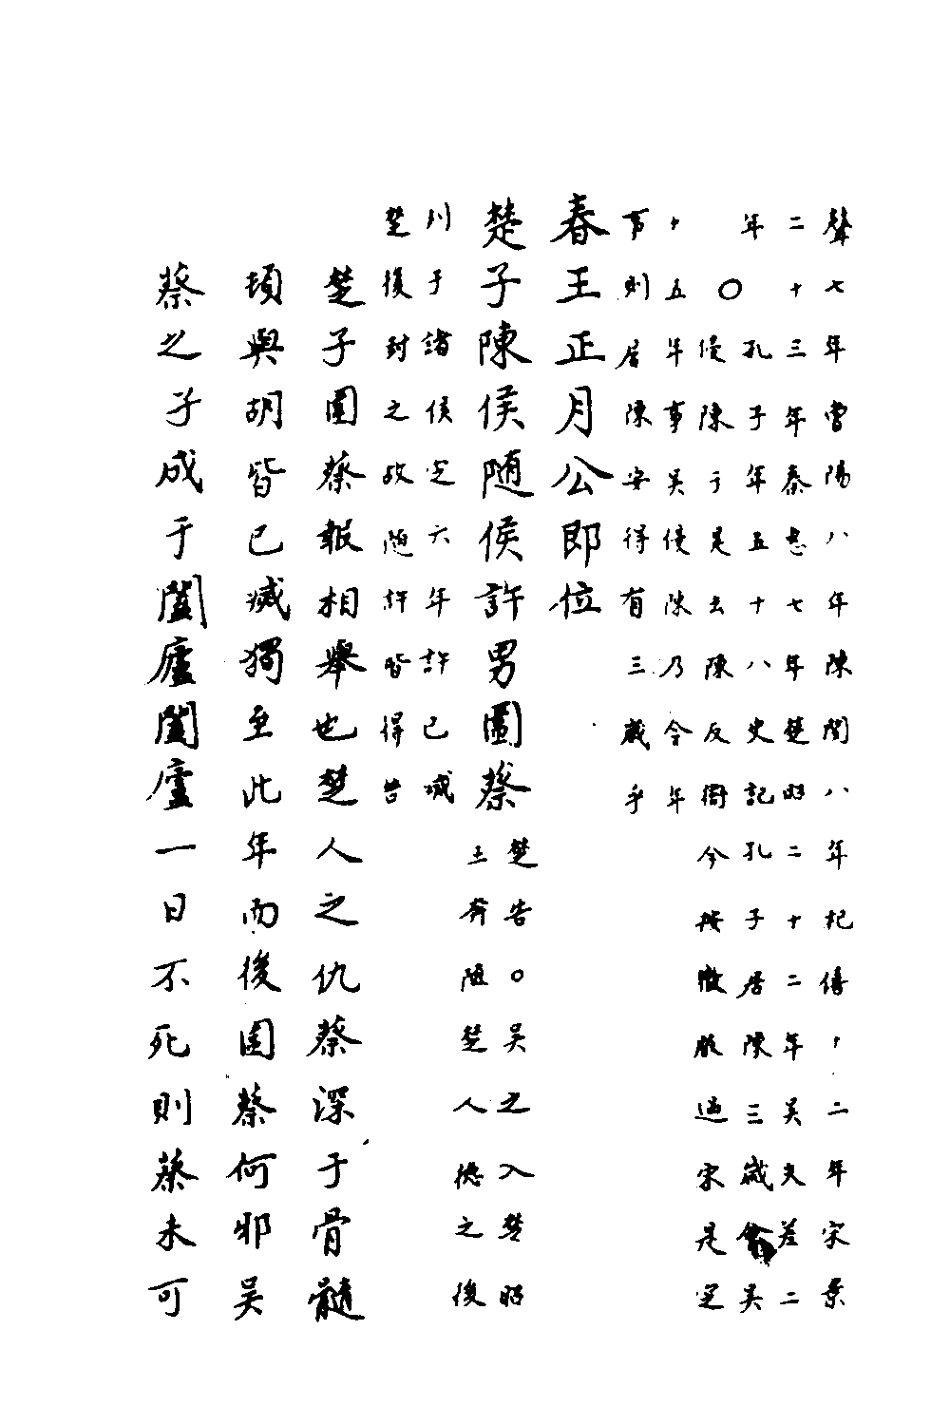 聲七年曹陽八年陳閔八年杞僖十二年宋景
二十三年秦惠七年楚昭二十二年吳夫差二
年〇孔子年五十八史記孔子居陳三歲會吳
侵陳于是去陳反衛今按微服過宋是定
十五年事吳侵陳乃今年
事則居陳安得有三歲乎
春王正月公即位
楚子陳侯随侯許男圍蔡楚告〇吳之入楚昭
王奔随楚人德之後
列于諸侯定六年許已滅
楚復封之故随許皆得告
楚子圍蔡報相舉也楚人之仇蔡深于骨髓
頓與胡皆已滅獨至此年而後圍蔡何邪吳
蔡之子成于闔廬闔廬一日不死則蔡未可